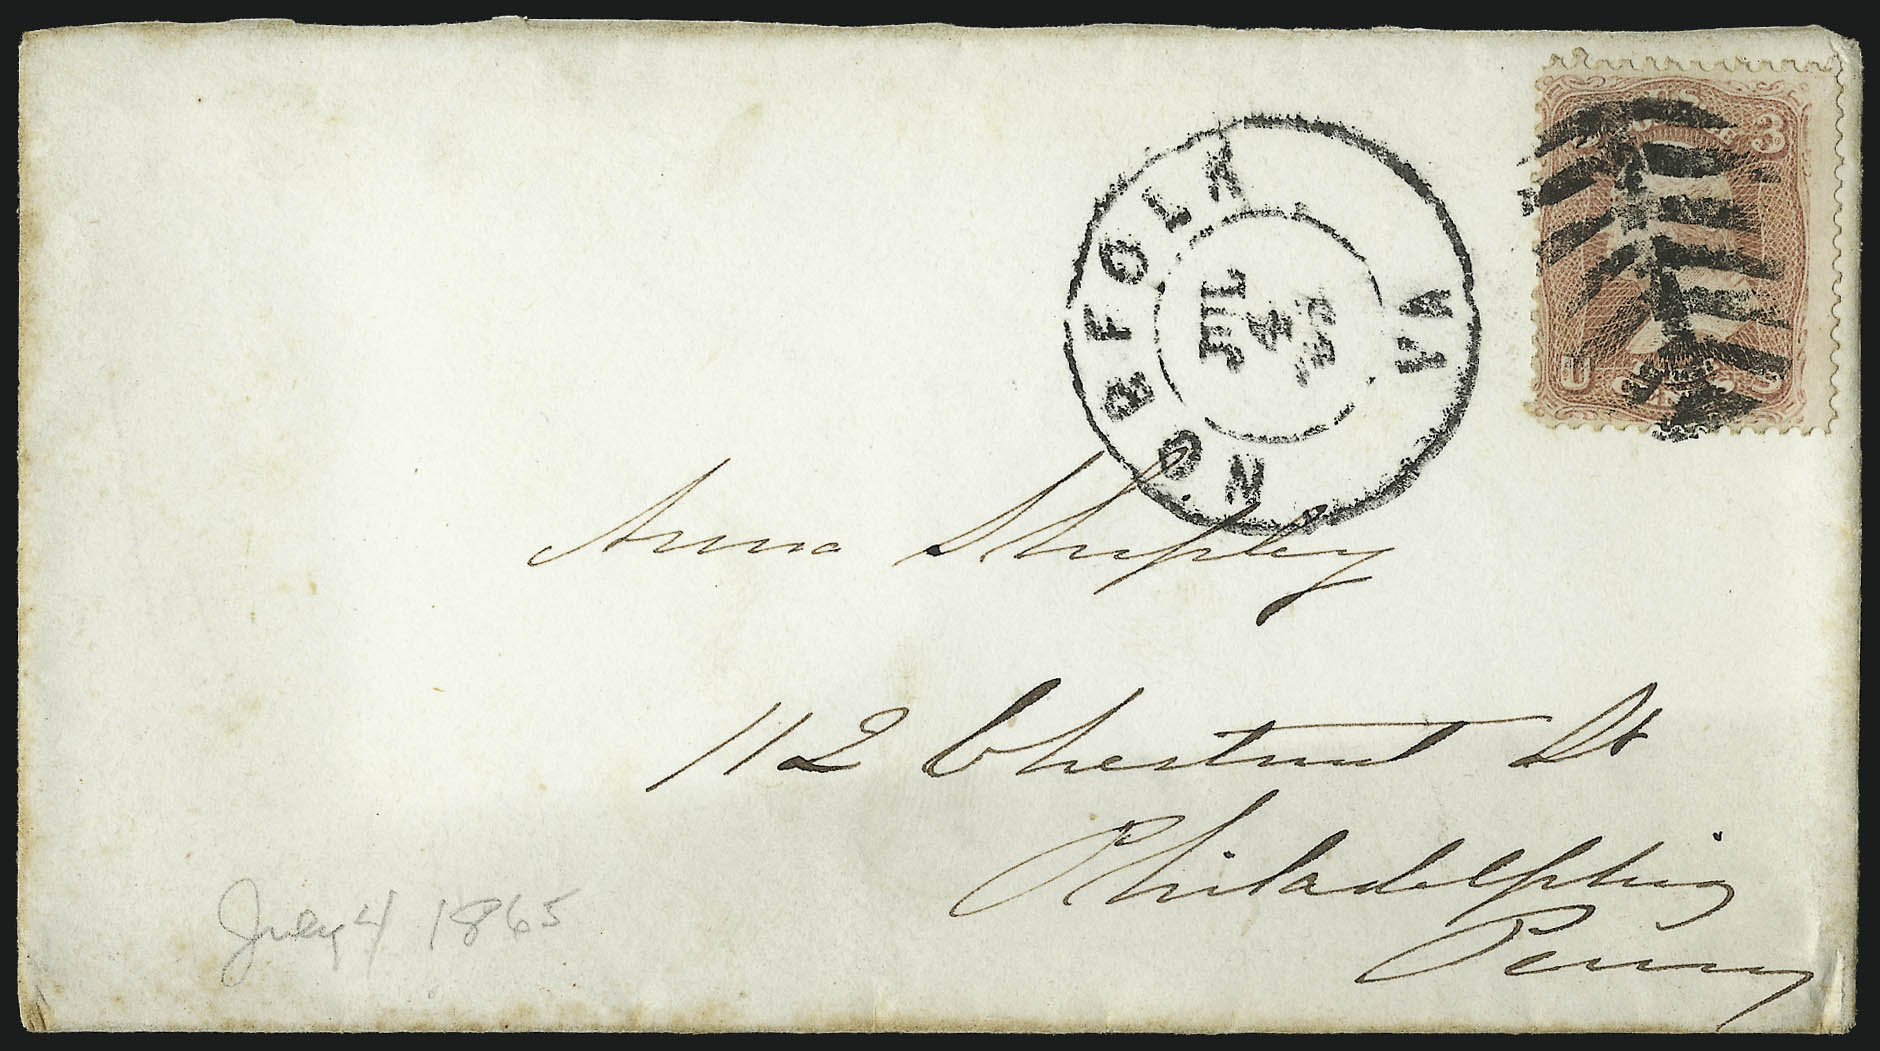 NORFOLK VA
JUL
4
'65
3
U S
Anna Shipley
112 Chestnut St
Philadelphia
Penna
July 4 1865